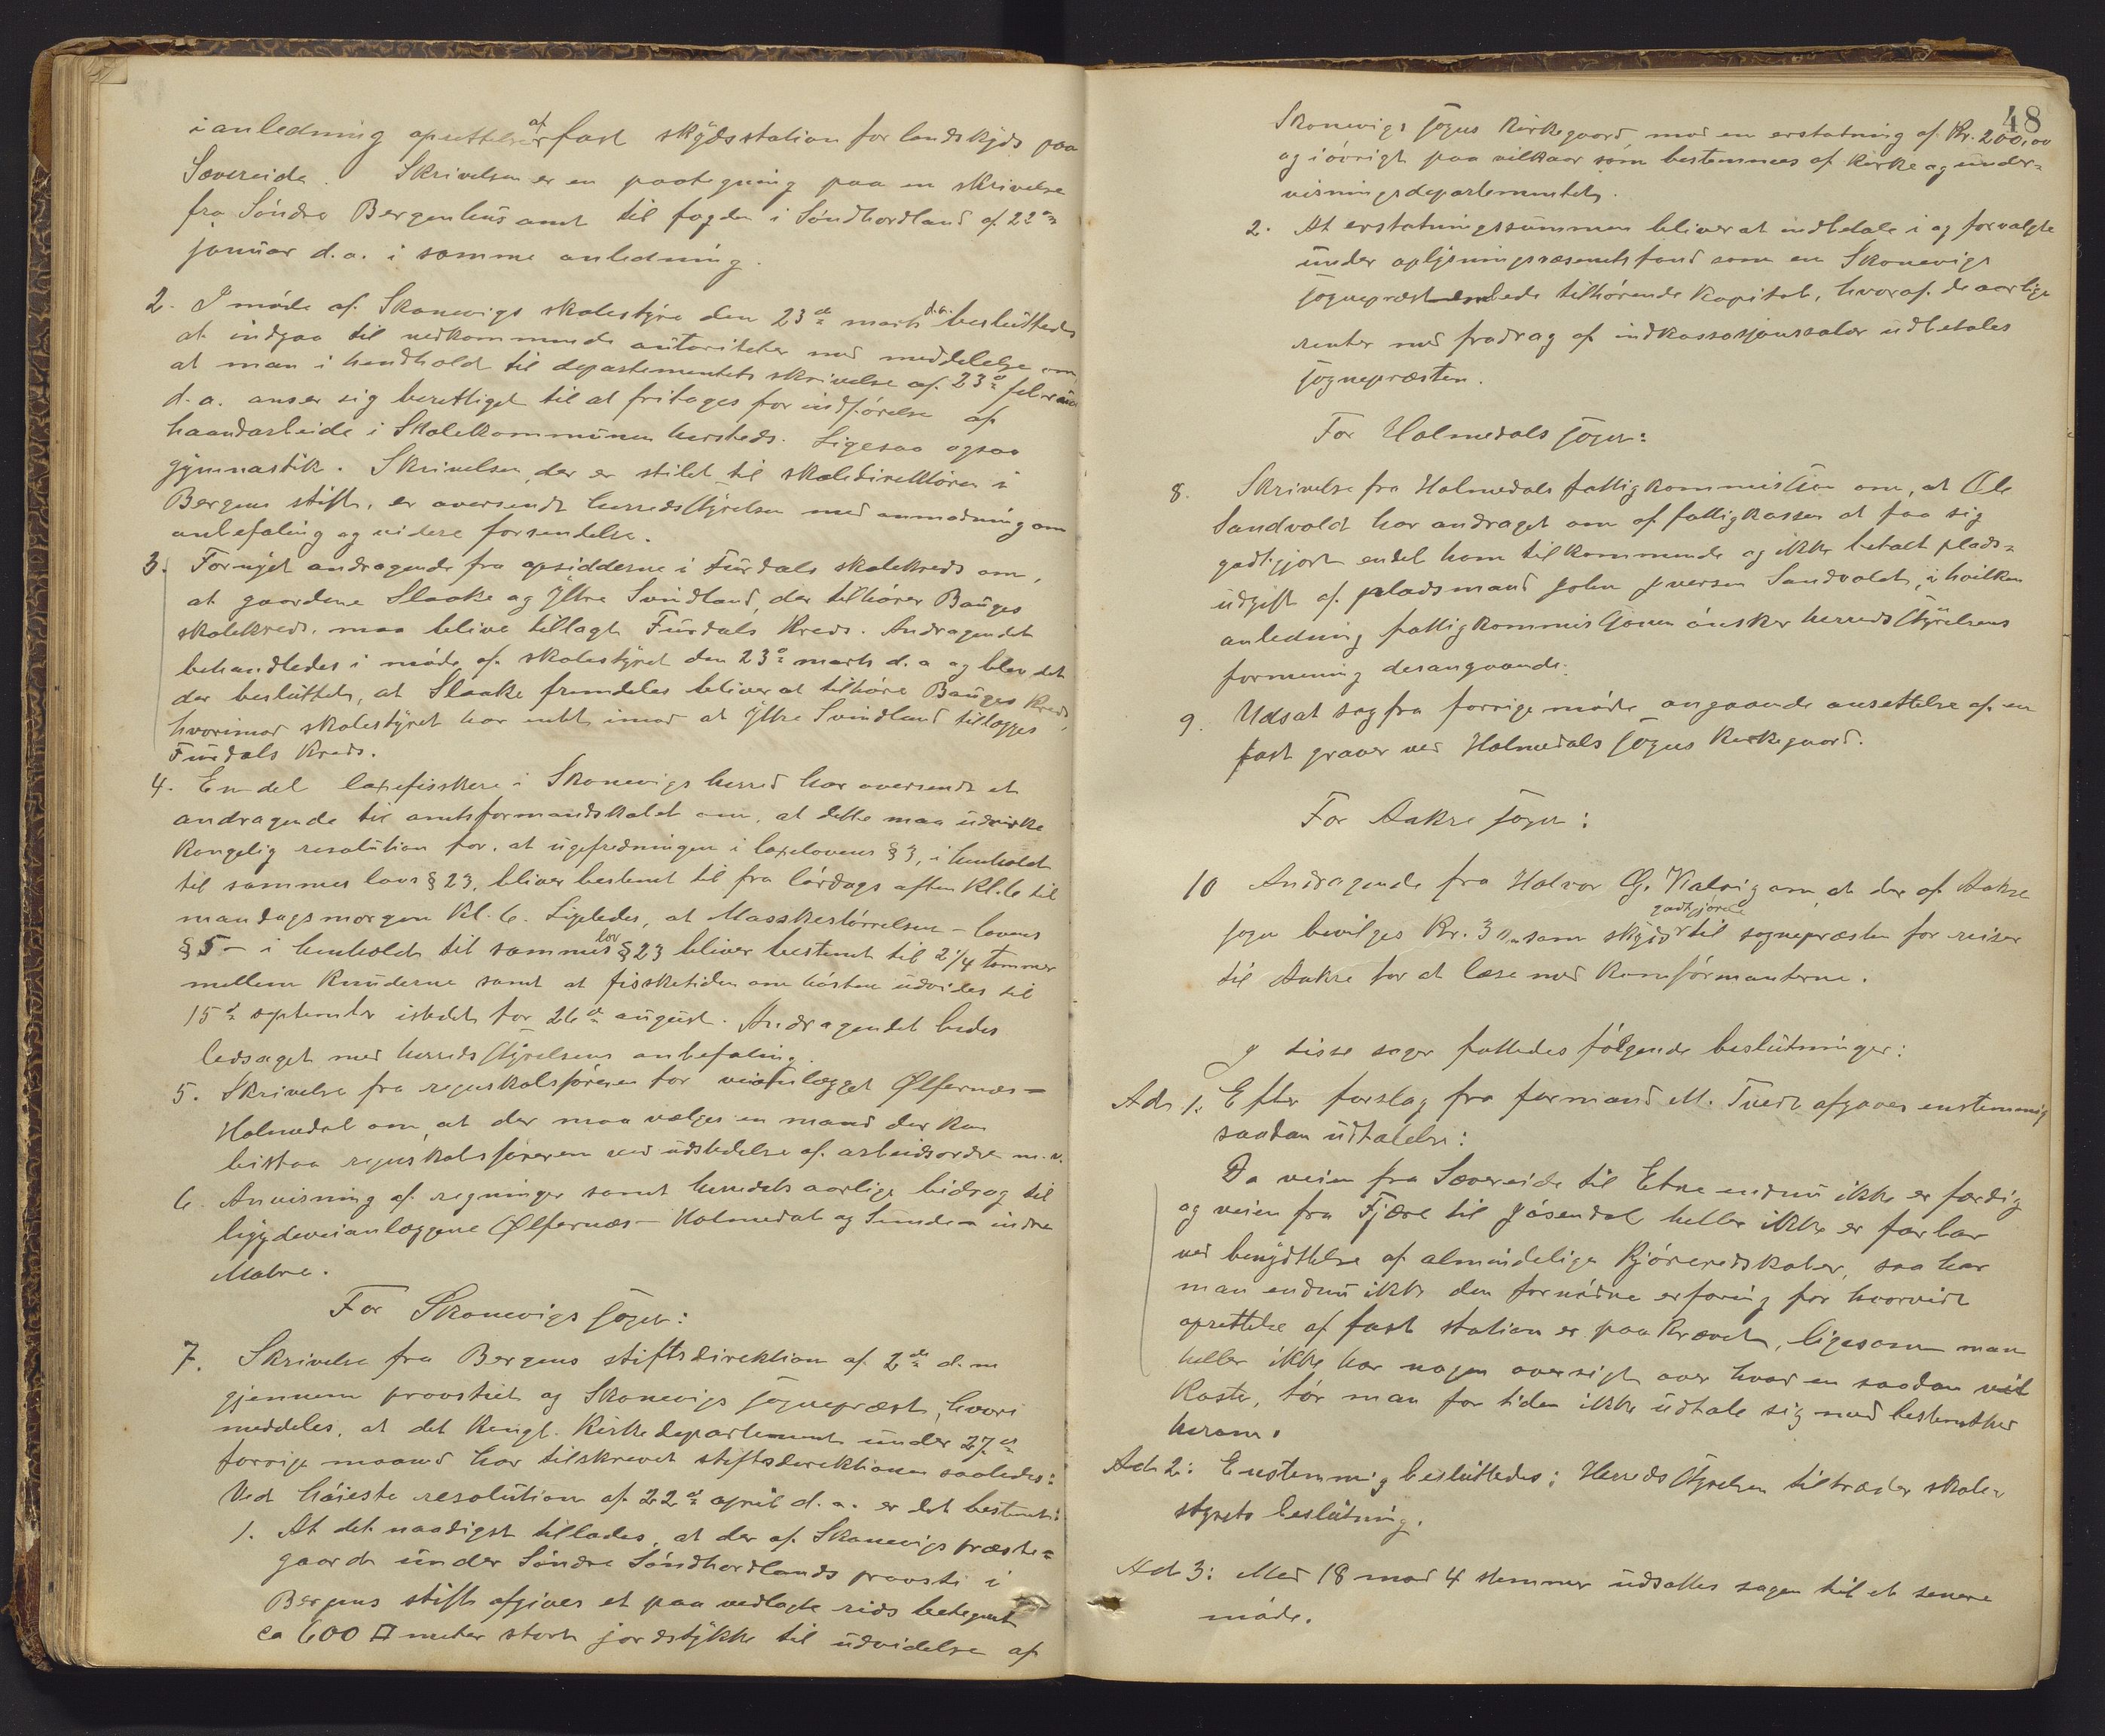 i anledning oprettelsen af fast skydsstation for landskyds paa
Sævereide. Skrivelsen er en paategning paa en skrivelse
fra Söndre Bergenhus amt til fogden i Söndhordland af 22de
januar d.a. i samme anledning.
2. I möde af Skonevigs skolestyre den 23de marts d.a. besluttedes
at indgaa til vedkommende autoriteter med meddelelse om,
at man i henhold til departementets skrivelse af 23de februar
d.a. anser sig berettiget til at fritages for indförelse af
haandarbeide i Skolekommunen hersteds. Ligesaa ogsaa
gymnastik. Skrivelsen, der er stilet til skoledirektören i
Bergens stift, er oversendt herredsstyrelsen med anmodning om
anbefaling og videre forsendelse.
3. Fornyet andragende fra opsidderne i Furdals skolekreds om,
at gaardene Slaake og Yttre Svindland, der tilhörer Bauges
skolekreds, maa blive tillagt Furdals Kreds. Andragendet
behandledes i möde af skolestyret den 23de marts d.a og blev det
der besluttet, at Slaake fremdeles bliver at tilhöre Bauges Kreds,
hvorimod skolestyret har intet imod at Yttre Svindland tillægges
Furdals Kreds.
4. En del laxefiskere i Skonevigs herred har oversendt et
andragende til amtsformandskabet om, at dette maa udvirke
Kongelig resolution for, at ugefredningen i laxelovens § 3, i henhold
til sammes lovs § 23, bliver bestemt til fra lördags aften Kl. 6 til
mandagsmorgen Kl. 6. Ligeledes, at Maskestörrelsen - lovens
§ 5 - i henhold til sammes lov § 23 bliver bestemt til 2 1/4 tommer
mellem Knuderne samt at fisketiden om hösten udvides til
15de september istedet for 26de august. Andragendet bedes
ledsaget med herredsstyrelsens anbefaling.
5. Skrivelse fra regnskabsföreren for veianlægget Ølfernæs =
Holmedal om, at der maa vælges en mand der kan
bistaa regnskabsföreren ved udstedelse af arbeidsordre m.v.
6. Anvisning af regninger samt herredets aarlige bidrag til
bygdeveianlæggene Ølfernæs - Holmedal og Sunde - indre
Matre.
For Skonevigs sogn:
7. Skrivelse fra Bergens stiftsdirektion af 2de d.m
gjennem provstiet og Skonevigs sognepræst, hvori
meddeles, at det Kongl. Kirkedepartement under 27de
forrige maaned har tilskrevet stiftsdirektionen saaledes:
Ved höieste resolution af 22de april d.a. er det bestemt:
1. At det naadigst tillades, at der af Skonevigs præste=
gaard under Söndre Söndhordlands provsti i
Bergens stift afgives et paa vedlagte rids betegnet
ca 600 □ meter stort jordstykke til udvidelse af
48
Skonevigs sogns Kirkegaard mod en erstatning af Kr. 200,00
og i övrigt paa vilkaar som bestemmes af Kirke og under=
visningsdepartementet.
2. At erstatningssummen bliver at indbetale i og forvalte
under oplysningsvæsenets fond som en Skonevigs
sognepræstembede tilhörende Kapital, hvoraf de aarlige
renter med fradrag af indkassasjonssalær udbetales
sognepræsten.
For Holmedals sogn:
8. Skrivelse fra Holmedals fattigkommission om, at Ole
Sandvold har andraget om af fattigkassen at faa sig
godtgjort endel ham tilkommende og ikke betalt plads=
udgift af pladsmand John Iversen Sandvold, i hvilken
anledning fattigkommissionen önsker herredsstyrelsens
formening desangaaende.
9. Udsat sag fra forrige möde angaaende ansettelse af en
fast graver ved Holmedals sogns Kirkegaard.
For Aakre sogn:
10 Andragende fra Halvor G. Valvig om, at der af Aakre
sogn bevilges Kr. 30,- som skydsgodtgjörelse til sognepræsten for reiser
til Aakre for at læse med Konfirmanterne.
I disse sager fattedes fölgende beslutninger:
Ad 1. Efter forslag fra formand M. Tvedt afgaves enstemmig
saadan udtalelse:
Da veien fra Sævereide til Etne endnu ikke er færdig
og veien fra Fjære til Jösendal heller ikke er farbar
ved benyttelse af almindelige Kjöreredskaber, saa har
man endnu ikke den fornödne erfaring for hvorvidt
oprettelse af fast station er paa Krævet, ligesom man
heller ikke har nogen oversigt over hvad en saadan vil
Koste, tör man for tiden ikke udtale sig med bestemthed
herom.
Ad 2: Enstemmig besluttedes: Herredsstyrelsen tiltræder skole=
styrets beslutning.
Ad 3: Med 18 mod 4 stemmer udsattes sagen til et senere
möde.